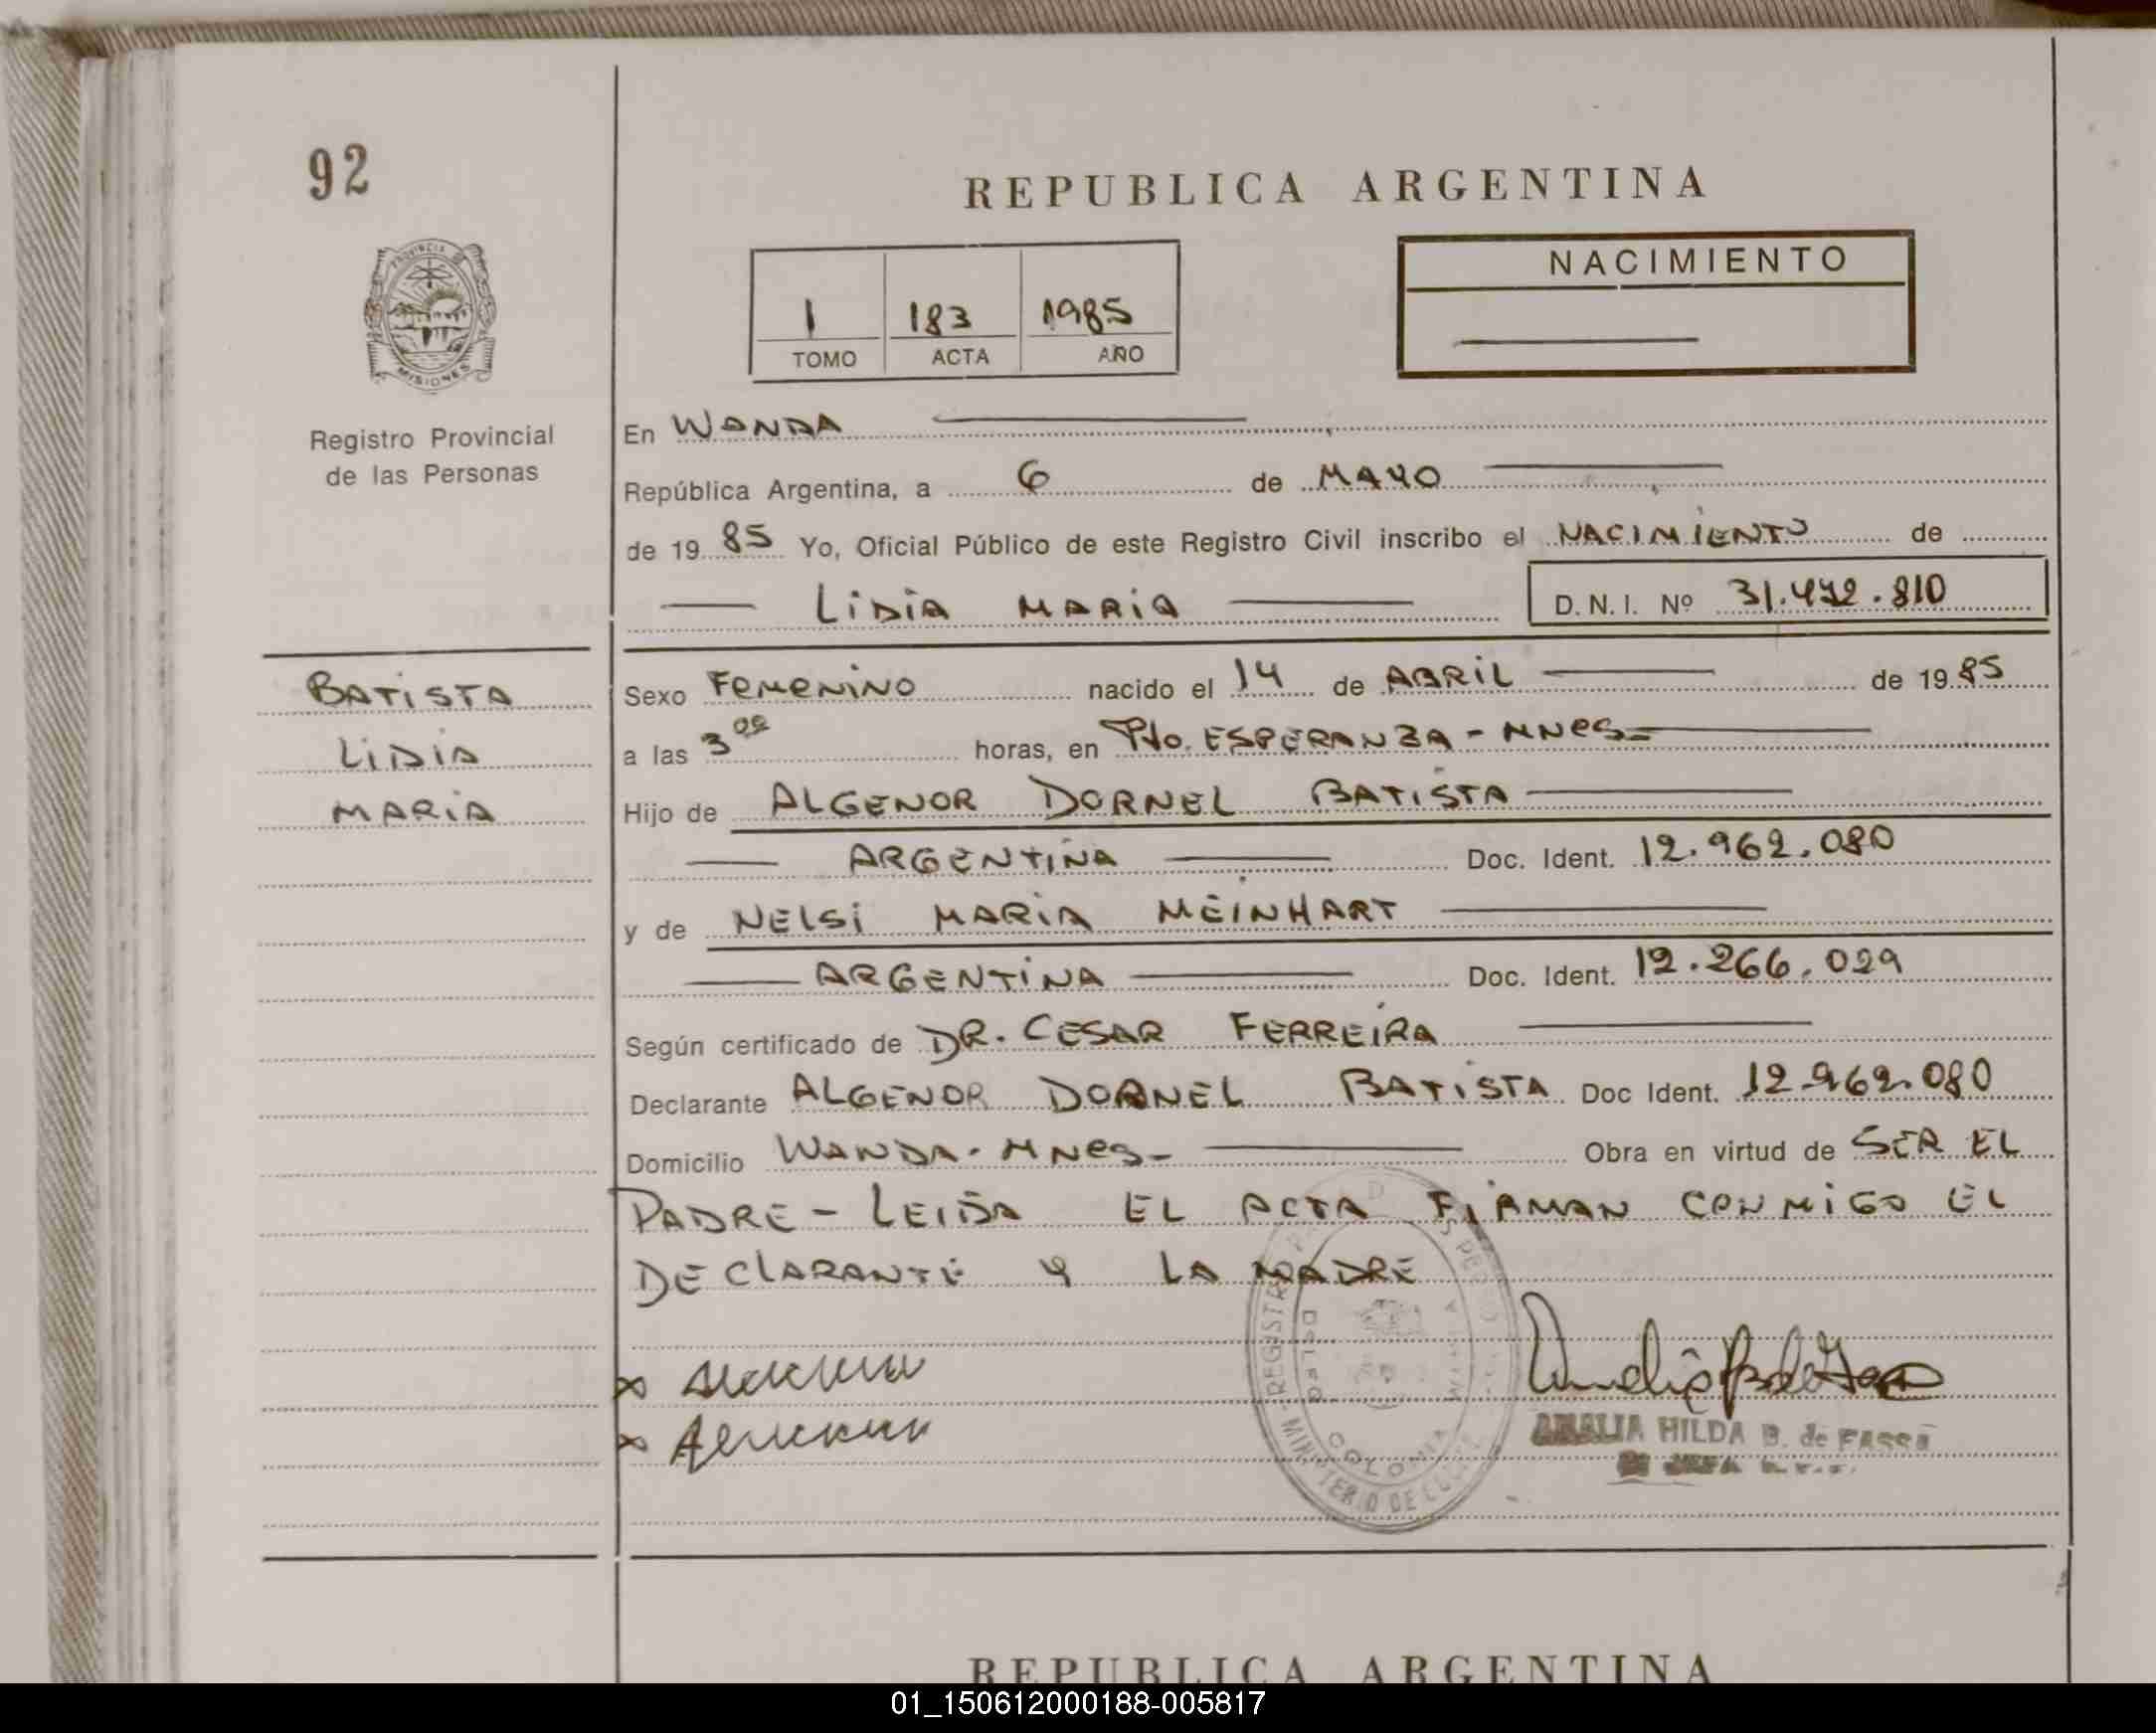 92
REPUBLICA ARGENTINA
PROVINCIA DE
MISIONES
NACIMIENTO
1 183 1985
TOMO ACTA AÑO
Registro Provincial
de las Personas
En WANDA
República Argentina, a 6 de MAYO
de 1985 Yo, Oficial Público de este Registro Civil inscribo el NACIMIENTO de
LIDIA MARIA D.N.I. Nº 31.472.810
BATISTA
LIDIA
MARIA
Sexo FEMENINO nacido el 14 de ABRIL de 1985
a las 3 00 horas, en Pto. ESPERANZA - MNES
Hijo de ALGENOR DORNEL BATISTA
ARGENTINA Doc. Ident. 12.962.080
y de NELSI MARIA MEINHART
ARGENTINA Doc. Ident. 12.266.029
Según certificado de DR. CESAR FERREIRA
Declarante ALGENOR DORNEL BATISTA Doc Ident. 12.962.080
Domicilio WANDA - MNES - Obra en virtud de SER EL
PADRE - LEIDA EL ACTA FIRMAN CONMIGO EL
DECLARANTE Y LA MADRE
REGISTRO
MINISTERIO DE
COLONIA
WANDA
AMALIA HILDA B. de FASSA
JEFA
REPUBLICA ARGENTINA
01_150612000188-005817